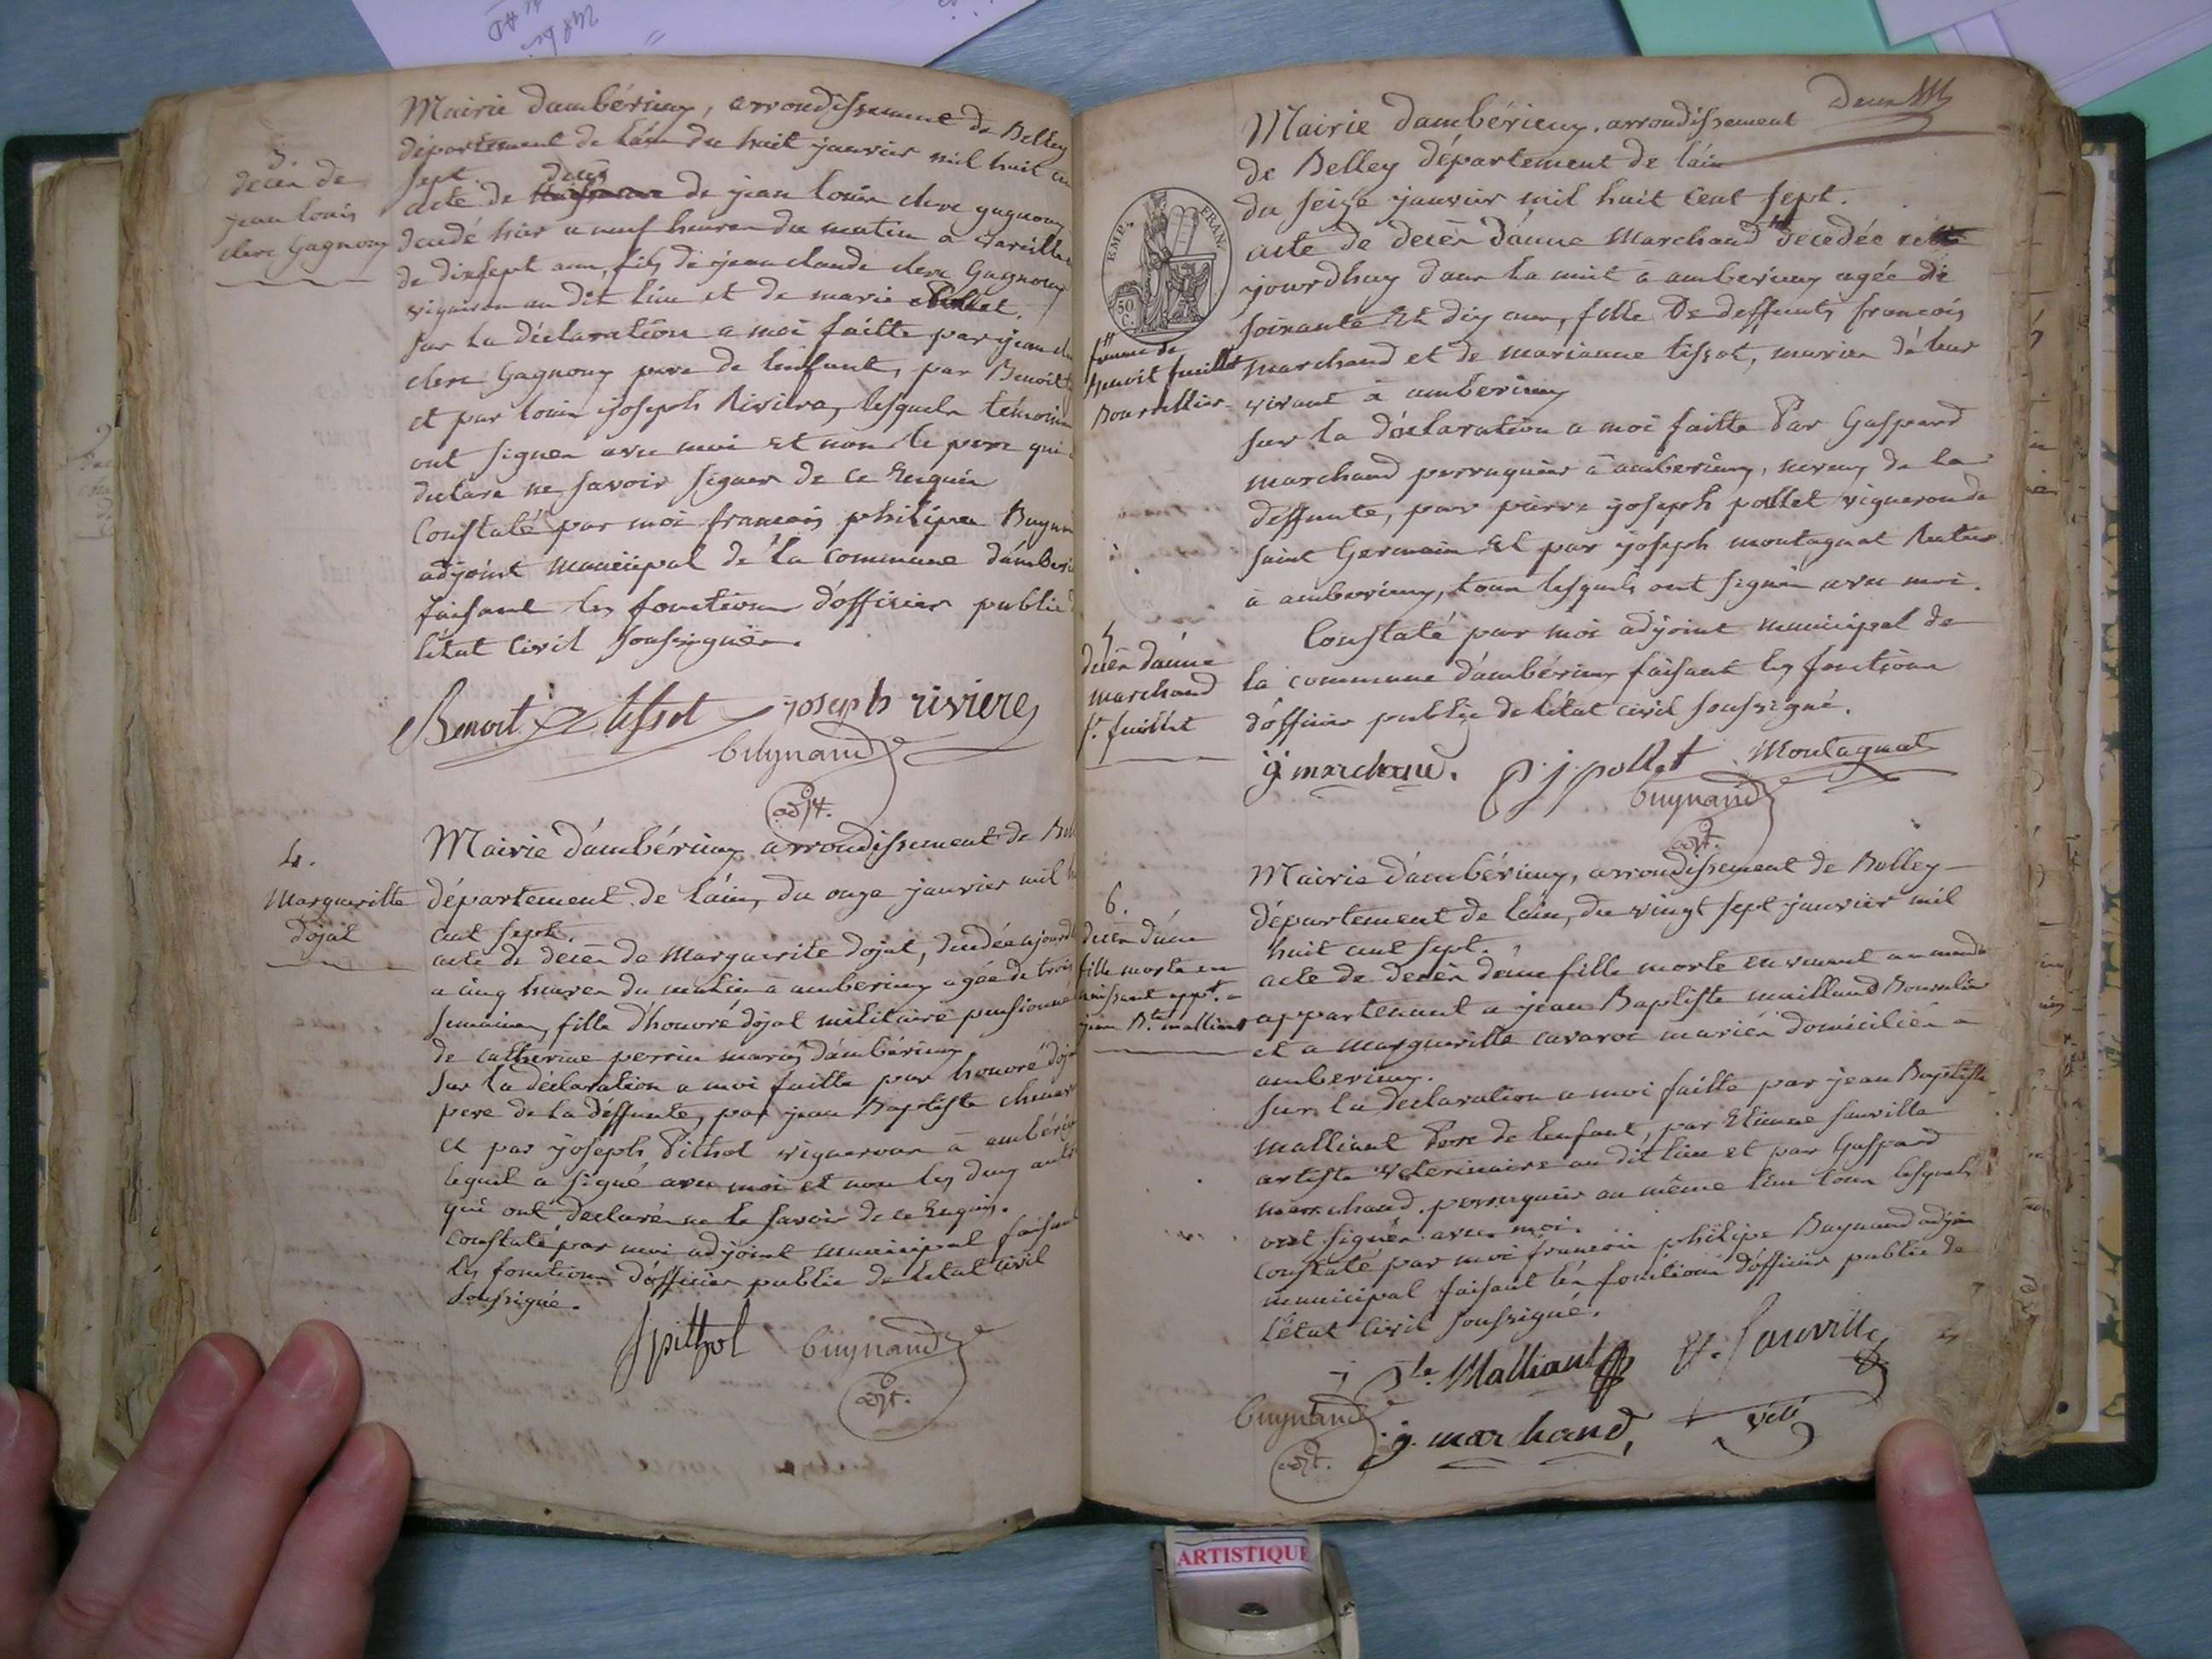 3.
decés de
jean louis
clerc Gagnoux
Mairie d'ambérieux, arrondissement de Belley
département de l'ain du huit janvier mil huit
sept.
acte de naissance decés de jean louis clerc gagnoux
decedé hier a neuf heures du matin a vareille
de dixsept ans, fils de jean claude clerc Gagnoux
vigneron au dit lieu et de marie Pollet.
sur la déclaration a moi faitte par jean
clerc Gagnoux pere de l'enfant, par Benoit
et par louis joseph Riviere, lesquels témoins
ont signés avec moi et non le pere qui
declare ne savoir signer de ce Enquis
Constaté par moi francois philipes Buynand
adjoint municipal de la commune d'amberi
faisant les fonctions d'officier public
l'état civil soussignés.
Benoit Tissot joseph riviere
buynand
adjt.
4.
Margueritte
dojat
Mairie d'ambérieux arrondissement de Bell
département de l'ain, du onze janvier mil h
cent sept.
acte de decés de Marguerite dojat, decedée ajourd
a cinq heures du matin a amberieux agée de trois
semaines, fille d'honoré dojat militaire pensionné
de catherine perrin mariés d'ambérieux
sur la déclaration a moi faitte par honoré doj
pere de la deffunte, par jean Baptiste
et par joseph Pithol vignerons a ambéri
lequel a signé avec moi et non les deux autr
qui ont declaré ne le savoir de ce Enquis.
constaté par moi adjoint municipal faisant
les fonctions d'officier public de l'etat civil
soussigné.
J pithol buynand
adjt.
deux
EMP. FRAN.
50 C.
Mairie d'ambérieux, arrondissement
de Belley département de l'ain
du seize janvier mil huit cent sept.
acte de decés d'anne Marchand decedée
jourdhuy dans la nuit a amberieux agée de
soixante Et dix ans, fille De deffunts francois
marchand et de marianne tissot, mariés de leur
vivant a amberieux
femme de
Benoit fuillet
Bourrellier
sur la déclaration a moi faitte Par Gaspard
marchand perruquier a amberieux, neveux de la
deffunte, par pierre joseph pollet vigneron de
saint Germain Et par joseph montagnat Rentier
a amberieux, tous lesquels ont signés avec moi.
5
decés d'anne
marchand
fe. fuillet
Constaté par moi adjoint municipal de
la commune d'ambérieux faisant les fonctions
d'officier public de l'état civil soussigné.
g marchand. P. j. pollet Montagnat
buynand
adjt.
6.
decés d'une
fille morte en
naissant appt. a
jean Bte. malliant
Mairie d'ambérieux, arrondissement de Belley
département de l'ain, du vingt sept janvier mil
huit cent sept.
acte de decés d'une fille morte en venant au monde
appartenant a jean Baptiste mailland Bourrelier
et a Marguerille cavaroc mariés domiciliés a
amberieux.
sur la declaration a moi faitte par jean Baptiste
malliant Pere de l'enfant, par Etienne fauville
artiste véterinaire au dit lieu et par Gaspard
marchand perruquier au même lieu tous lesquels
ont signés avec moi.
constaté par moi francois philipe Buynand adjoin
municipal faisant les fonctions d'officier public de
l'état civil soussigné.
j Bte. Malliant E. fauville
buynand g. marchand, vété
adjt.
ARTISTIQUE